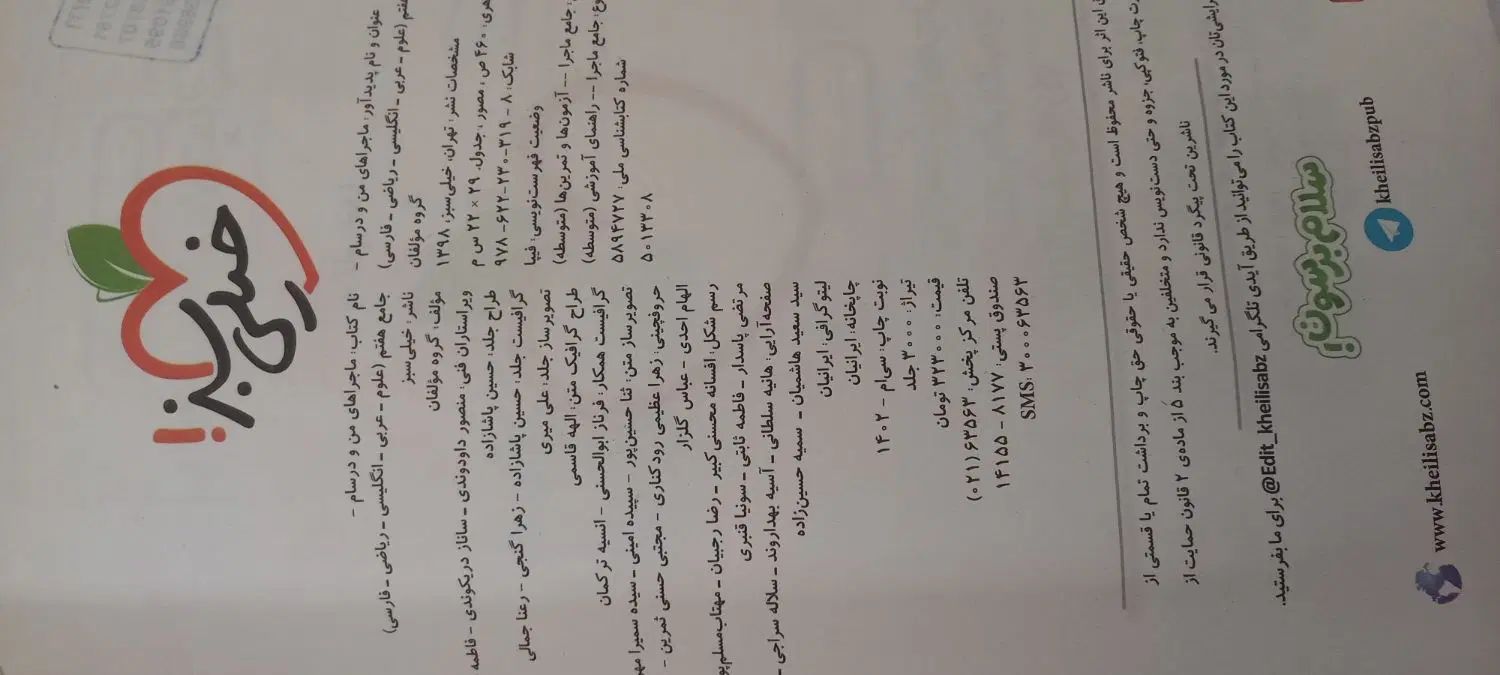 خیلی سبز!
عنوان و نام پدیدآور: ماجراهای من و درسام -
هفتم (علوم - عربی - انگلیسی - ریاضی - فارسی)
گروه مؤلفان
مشخصات نشر: تهران، خیلی‌سبز، ۱۳۹۸
۴۶۰ ص، مصور، جدول، ۲۹ × ۲۲ س م
شابک: ۸-۳۱۹-۲۳۰-۶۲۲-۹۷۸
وضعیت فهرست‌نویسی: فیپا
جامع ماجرا -- آزمون‌ها و تمرین‌ها (متوسطه)
جامع ماجرا -- راهنمای آموزشی (متوسطه)
شماره کتابشناسی ملی: ۵۸۹۴۷۲۷
۵۰۱۳۳۰۸
نام کتاب: ماجراهای من و درسام -
جامع هفتم (علوم - عربی - انگلیسی - ریاضی - فارسی)
ناشر: خیلی‌سبز
مؤلف: گروه مؤلفان
ویراستاران فنی: منصور داودوندی - ساناز دریکوندی - فاطمه
طراح جلد: حسین پاشازاده
گرافیست جلد: حسین پاشازاده - زهرا گنجی - رعنا جمالی
تصویرساز جلد: علی میری
طراح گرافیک متن: الهه قاسمی
گرافیست همکار: فرناز ابوالحسنی - انسیه ترکمان
تصویرساز متن: ثنا حسین‌پور - سپیده امینی - سیده سمیرا
حروفچینی: زهرا عظیمی رودکناری - مجتبی حسنی ثمرین -
الهام احدی - عباس گلزار
رسم شکل: افسانه محسنی کبیر - رضا رجبیان - مهتاب
مرتضی پاسدار - فاطمه ثابتی - سونیا قنبری
صفحه‌آرایی: هانیه سلطانی - آسیه بهداروند - سلاله سراجی -
سید سعید هاشمیان - سمیه حسین‌زاده
لیتوگرافی: ایرانیان
چاپخانه: ایرانیان
نوبت چاپ: سی‌ام - ۱۴۰۲
تیراژ: ۳۰۰۰ جلد
قیمت: ۳۲۳۰۰۰ تومان
تلفن مرکز پخش: ۶۳۵۶۳ (۰۲۱)
صندوق پستی: ۸۱۷۷ - ۱۴۱۵۵
SMS: ۳۰۰۰۶۳۵۶۳
این اثر برای ناشر محفوظ است و هیچ شخص حقیقی یا حقوقی حق چاپ و برداشت تمام یا قسمتی از
چاپ، فتوکپی، جزوه و حتی دست‌نویس ندارد و متخلفین به موجب بند ۵ از ماده‌ی ۲ قانون حمایت از
ناشرین تحت پیگرد قانونی قرار می‌گیرند.
در مورد این کتاب را می‌توانید از طریق آیدی تلگرامی @Edit_kheilisabz برای ما بفرستید.
سلام برسون!
kheilisabzpub
www.kheilisabz.com